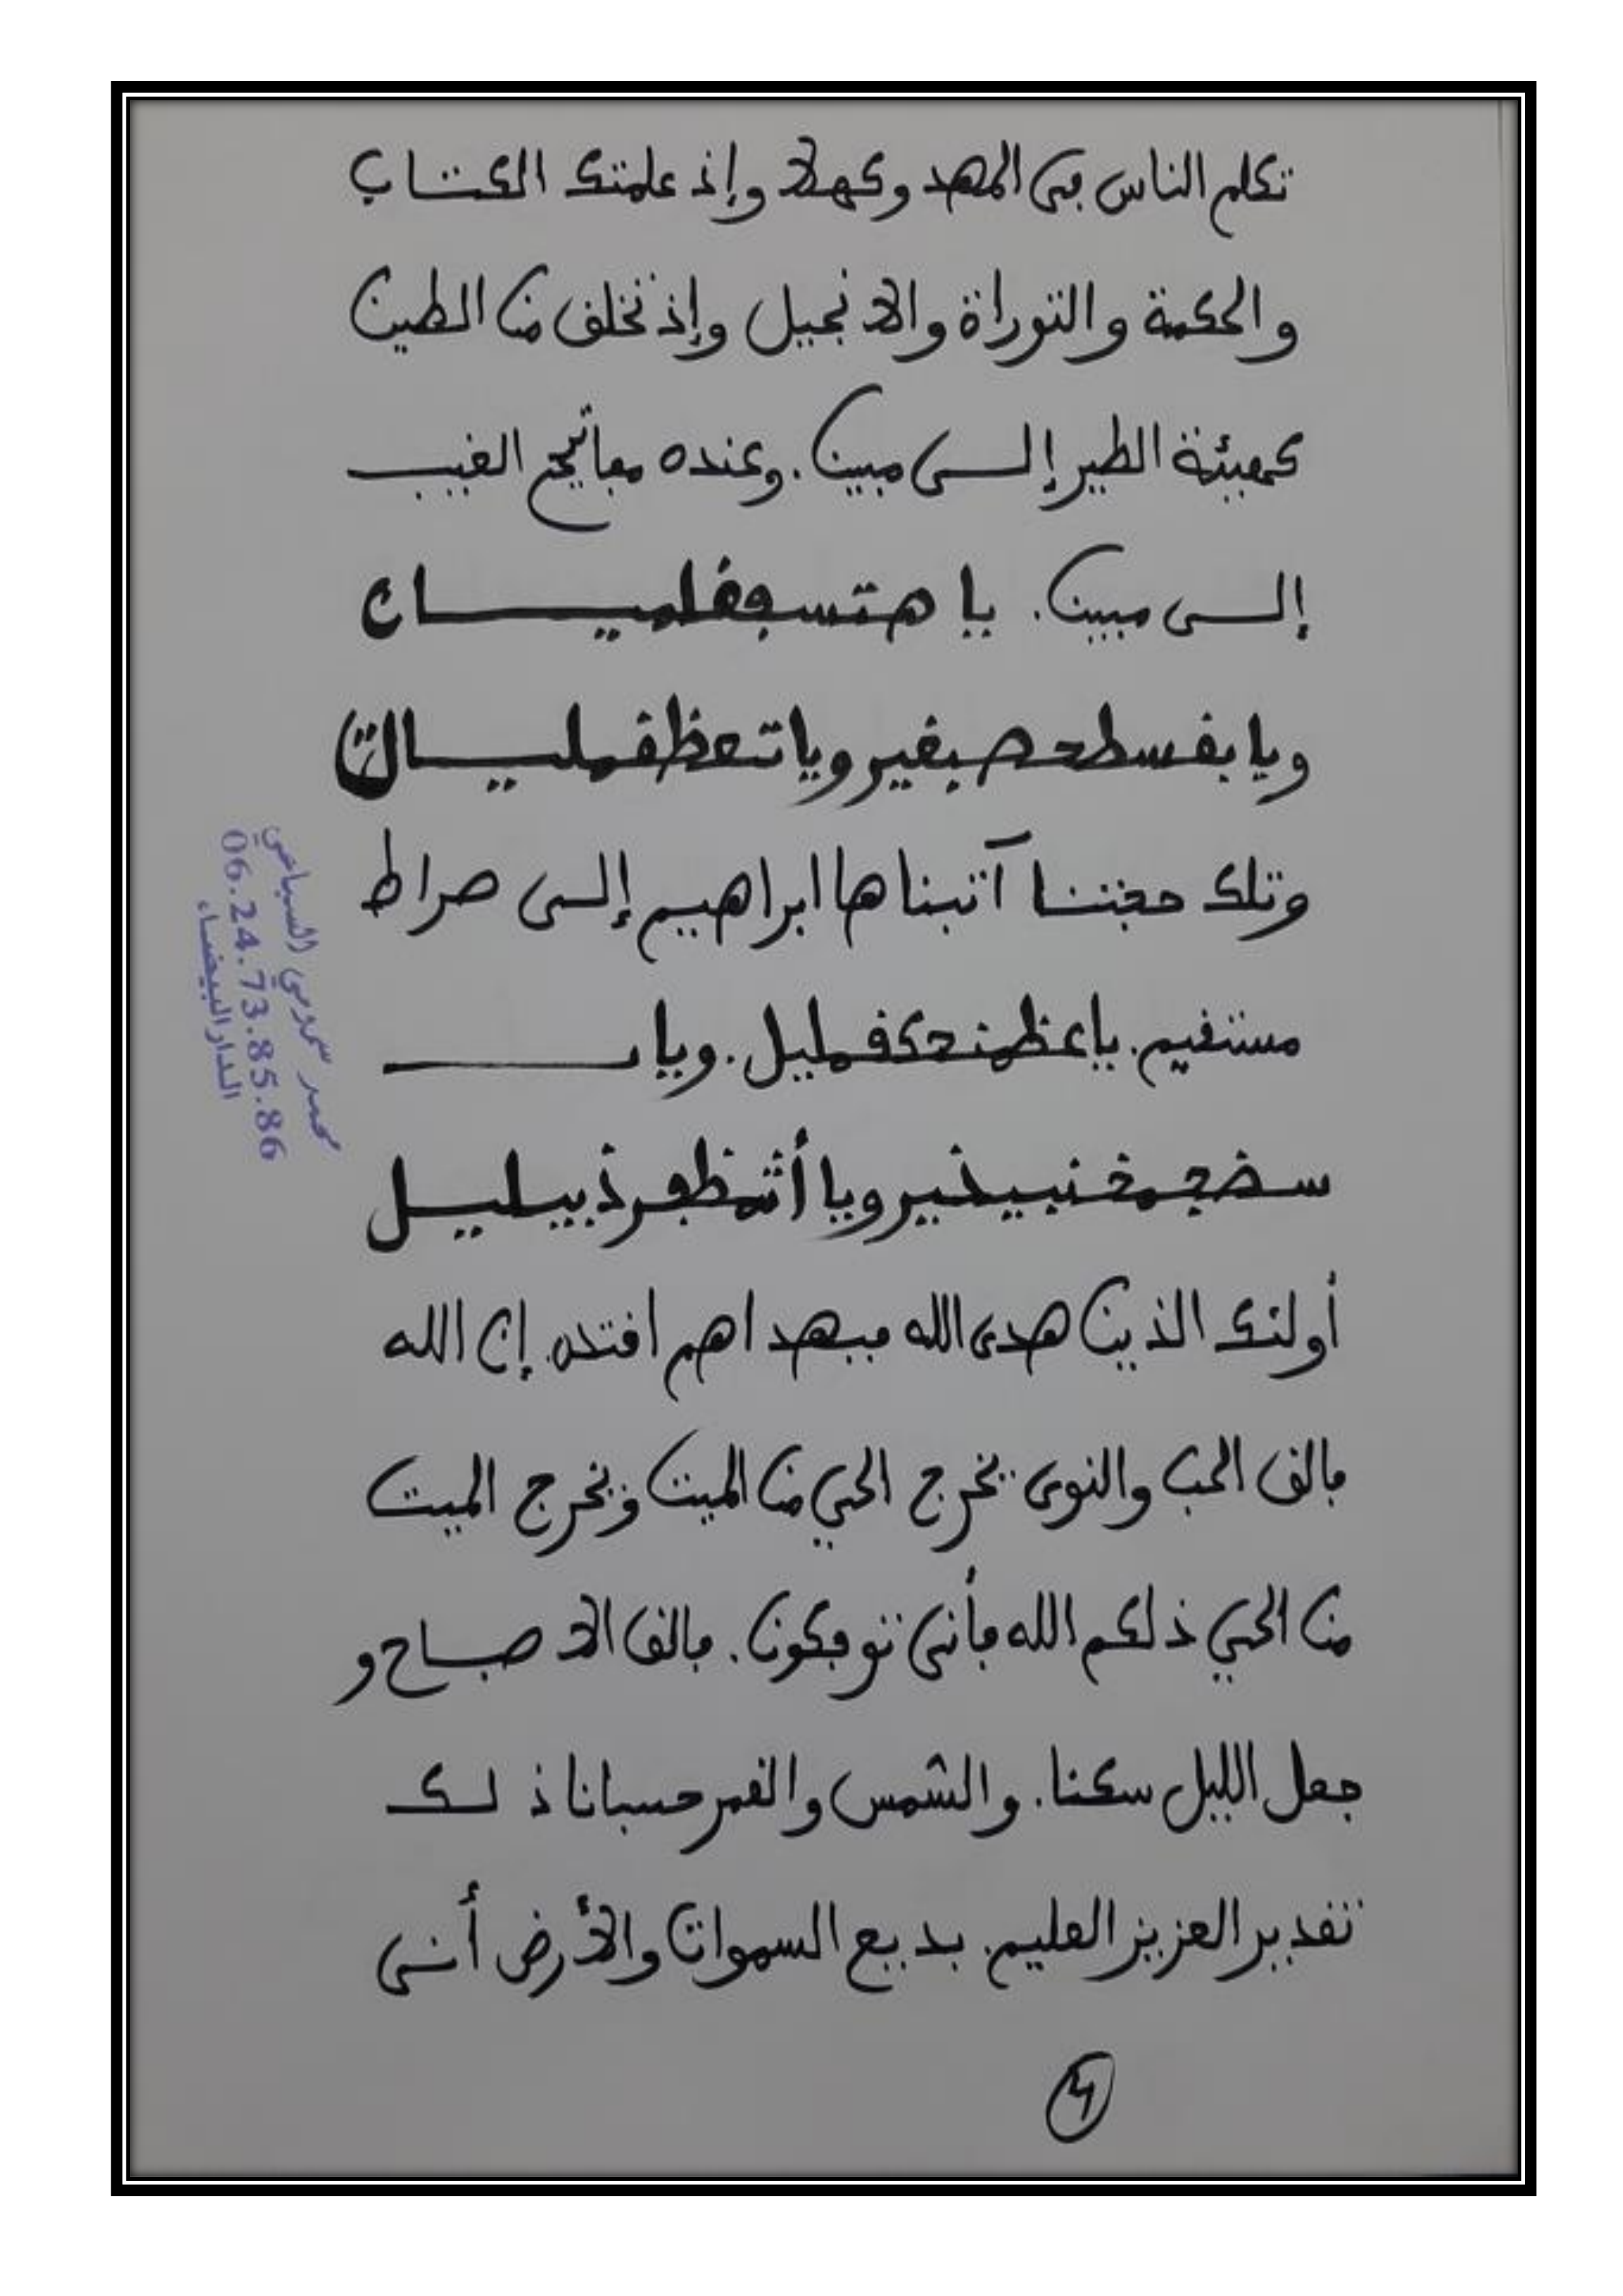 تكلم الناس في المهد وكهلا وإذ علمتك الكتاب
والحكمة والتوراة والانجيل وإذ تخلق من الطين
كهيئة الطير إلى مبين. وعنده مفاتيح الغيب
إلى مبين. يا
ويا ويا
وتلك حجتنا آتيناها ابراهيم إلى صراط
مستقيم. يا ويا
ويا
أولئك الذين هدى الله فبهداهم اقتده. إن الله
فالق الحب والنوى يخرج الحي من الميت ومخرج الميت
من الحي ذلكم الله فأنى توفكون. فالق الاصباح و
جعل الليل سكنا. والشمس والقمر حسبانا ذلك
تقدير العزيز العليم. بديع السموات والأرض أنى
4
محمد السباعي
06.24.73.85.86
الدار البيضاء